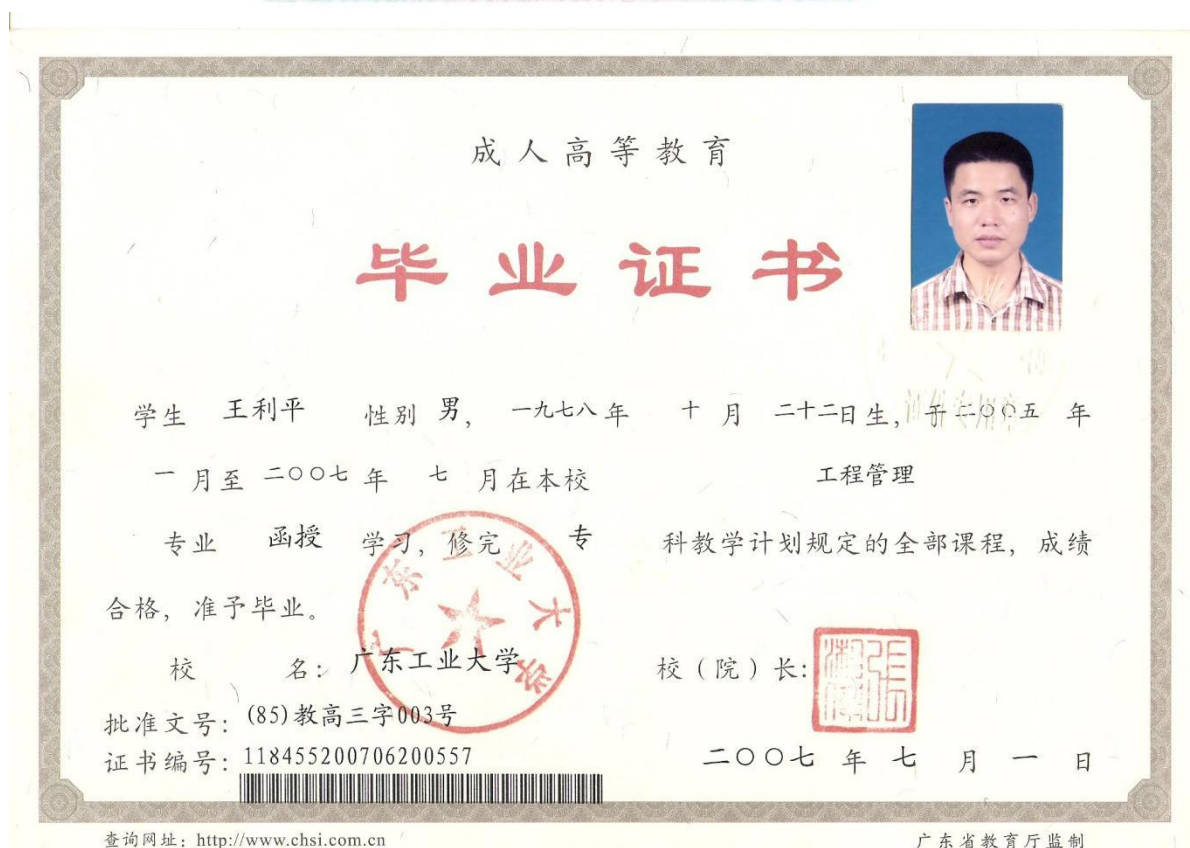 成人高等教育
毕业证书
学生 王利平 性别 男, 一九七八年 十月 二十二日生, 于二○○五 年
一月至 二○○七年 七月在本校 工程管理
专业 函授 学习, 修完 专 科教学计划规定的全部课程, 成绩
合格, 准予毕业。
广东工业大学
校 名: 广东工业大学 校(院)长:
批准文号: (85)教高三字003号
证书编号: 118455200706200557
二○○七 年 七 月 一 日
查询网址: http://www.chsi.com.cn 广东省教育厅监制